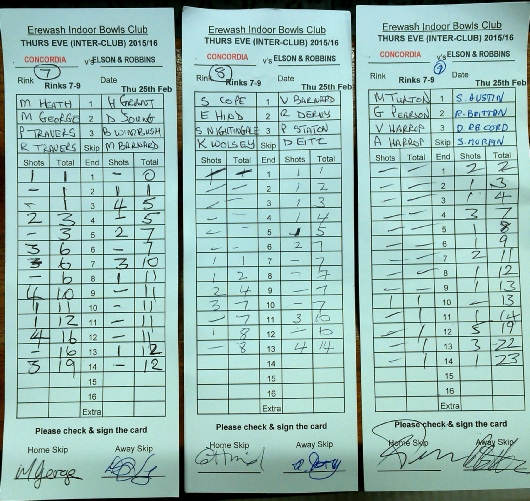 Erewash Indoor Bowls Club
THURS EVE (INTER-CLUB) 2015/16
CONCORDIA v's ELSON & ROBBINS
Rink 7 Rinks 7-9 Date Thu 25th Feb
M HEATH 1 H GRANT
M GEORGE 2 D
P TRAVERS 3 B WINDRUSH
R TRAVERS Skip M BARNARD
Shots Total End Shots Total
1 1 1 - 0
- 1 2 1 1
- 1 3 4 5
2 3 4 - 5
- 3 5 2 7
3 6 6 - 7
- 6 7 3 10
- 6 8 1 11
4 10 9 - 11
1 11 10 - 11
1 12 11 - 11
4 16 12 - 11
- 16 13 1 12
3 19 14 - 12
15
16
Extra
Please check & sign the card
Home Skip Away Skip
M George
Erewash Indoor Bowls Club
THURS EVE (INTER-CLUB) 2015/16
CONCORDIA v's ELSON & ROBBINS
Rink 8 Rinks 7-9 Date Thu 25th Feb
S COPE 1 V BARNARD
E HIND 2 R DERRY
S NIGHTINGALE 3 P STATON
K WOLSEY Skip D
Shots Total End Shots Total
- - 1 1 1
- - 2 1 2
- - 3 1 3
- - 4 1 4
- - 5 1 5
- - 6 2 7
1 1 7 - 7
1 2 8 - 7
2 4 9 - 7
3 7 10 - 7
- 7 11 3 10
1 8 12 - 10
- 8 13 4 14
14
15
16
Extra
Please check & sign the card
Home Skip Away Skip
Erewash Indoor Bowls Club
THURS EVE (INTER-CLUB) 2015/16
CONCORDIA v's ELSON & ROBBINS
Rink 9 Rinks 7-9 Date Thu 25th Feb
M TURTON 1 S. AUSTIN
G PEARSON 2 R. BRITTAN
V HARROP 3 D. RECORD
A HARROP Skip
Shots Total End Shots Total
- - 1 2 2
- - 2 1 3
- - 3 1 4
- - 4 3 7
- - 5 1 8
- - 6 1 9
- - 7 2 11
- - 8 1 12
- - 9 1 13
1 1 10 - 13
- 1 11 1 14
- 1 12 5 19
- 1 13 3 22
- 1 14 1 23
15
16
Extra
Please check & sign the card
Home Skip Away Skip